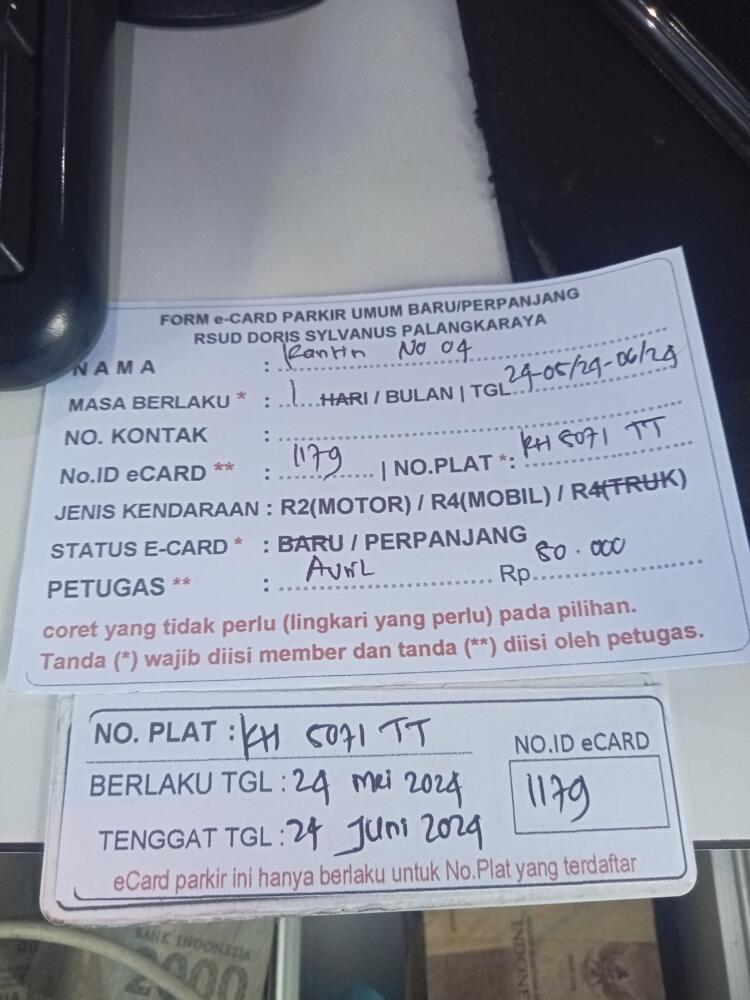 FORM e-CARD PARKIR UMUM BARU/PERPANJANG
RSUD DORIS SYLVANUS PALANGKARAYA
NAMA : Kantin No 04
MASA BERLAKU * : 1 HARI / BULAN | TGL 24-05/24-06/24
NO. KONTAK :
No.ID eCARD ** : 1179 | NO.PLAT *: KH 5071 TT
JENIS KENDARAAN : R2(MOTOR) / R4(MOBIL) / R4(TRUK)
STATUS E-CARD * : BARU / PERPANJANG
PETUGAS ** : Avril Rp. 80.000
coret yang tidak perlu (lingkari yang perlu) pada pilihan.
Tanda (*) wajib diisi member dan tanda (**) diisi oleh petugas.
NO. PLAT : KH 5071 TT
NO.ID eCARD
BERLAKU TGL : 24 Mei 2024
1179
TENGGAT TGL : 24 Juni 2024
eCard parkir ini hanya berlaku untuk No.Plat yang terdaftar
BANK INDONESIA
2000